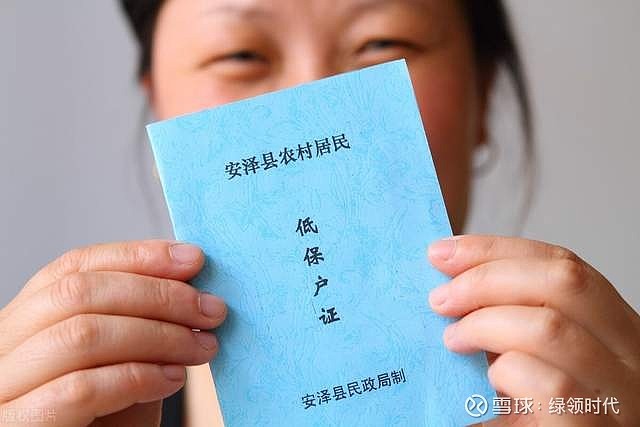 安泽县农村居民
低保户证
安泽县民政局制
版权图片
雪球:绿领时代